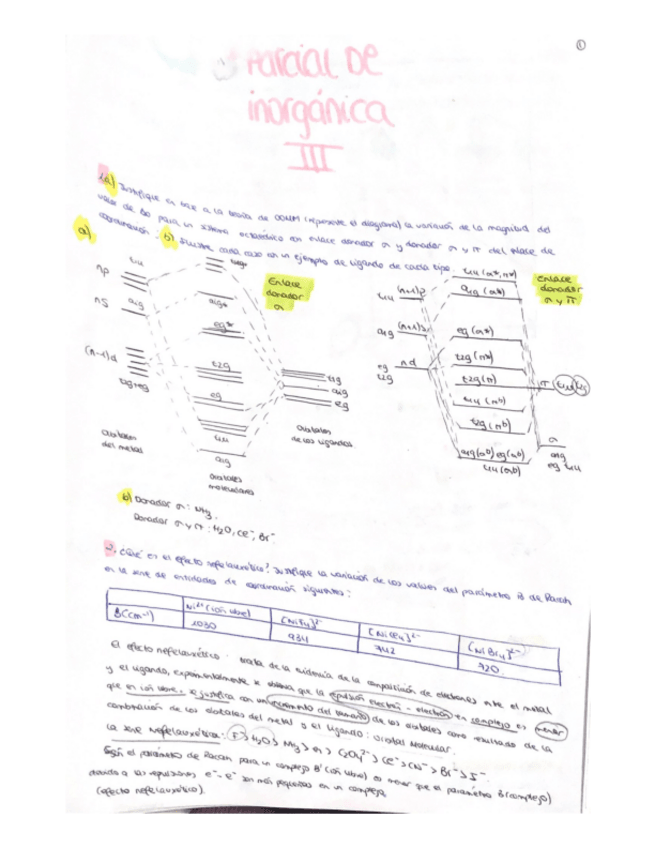 ①
Parcial De
inorgánica
III
1a) Justifique en base a la teoría de OOMM (represente el diagrama) la variación de la magnitud del
valor de Δo para un sistema octaédrico con enlace donador σ y donador σ y π del enlace de
coordinación: b) Ilustre cada caso con un ejemplo de ligando de cada tipo.
a)
Enlace
donador
σ
Enlace
donador
σ y π
np
t1u
ns
a1g
a1g*
eg*
(n-1)d
t2g
t2g+eg
eg
t1u
a1g
t1g
a1g
eg
Orbitales
del metal
Orbitales
de los ligandos
Orbitales
moleculares
t1u (σ*, π*)
t1u (n+1)p
a1g (σ*)
a1g (n+1)s
eg (σ*)
eg
t2g
nd
t2g (π*)
t2g (n)
t1u (πb)
t2g (πb)
a1g (σb) eg (σb)
t1u (σb)
σ
a1g
eg t1u
b) Donador σ: NH3.
Donador σ y π: H2O, Cl⁻, Br⁻
2. ¿Qué es el efecto nefelauxético? Justifique la variación de los valores del parámetro B de Racah
en la serie de entidades de coordinación siguientes:
Ni²⁺ (ión libre) [NiF4]²⁻ [NiCl4]²⁻ [NiBr4]²⁻
B(cm⁻¹) 1030 934 742 720
El efecto nefelauxético: trata de la evidencia de la compartición de electrones entre el metal
y el ligando, experimentalmente se observa que la repulsión electrón-electrón en complejo es menor
que en ión libre, se justifica con un incremento del tamaño de los orbitales como resultado de la
combinación de los orbitales del metal y el ligando: orbital molecular.
La serie nefelauxética: F⁻> H2O > NH3 > en > C2O4²⁻ > Cl⁻ > CN⁻ > Br⁻ > I⁻.
Según el parámetro de Racah para un complejo B' (ión libre) es menor que el parámetro B (complejo)
debido a las repulsiones e⁻-e⁻ son más pequeñas en un complejo
(efecto nefelauxético).